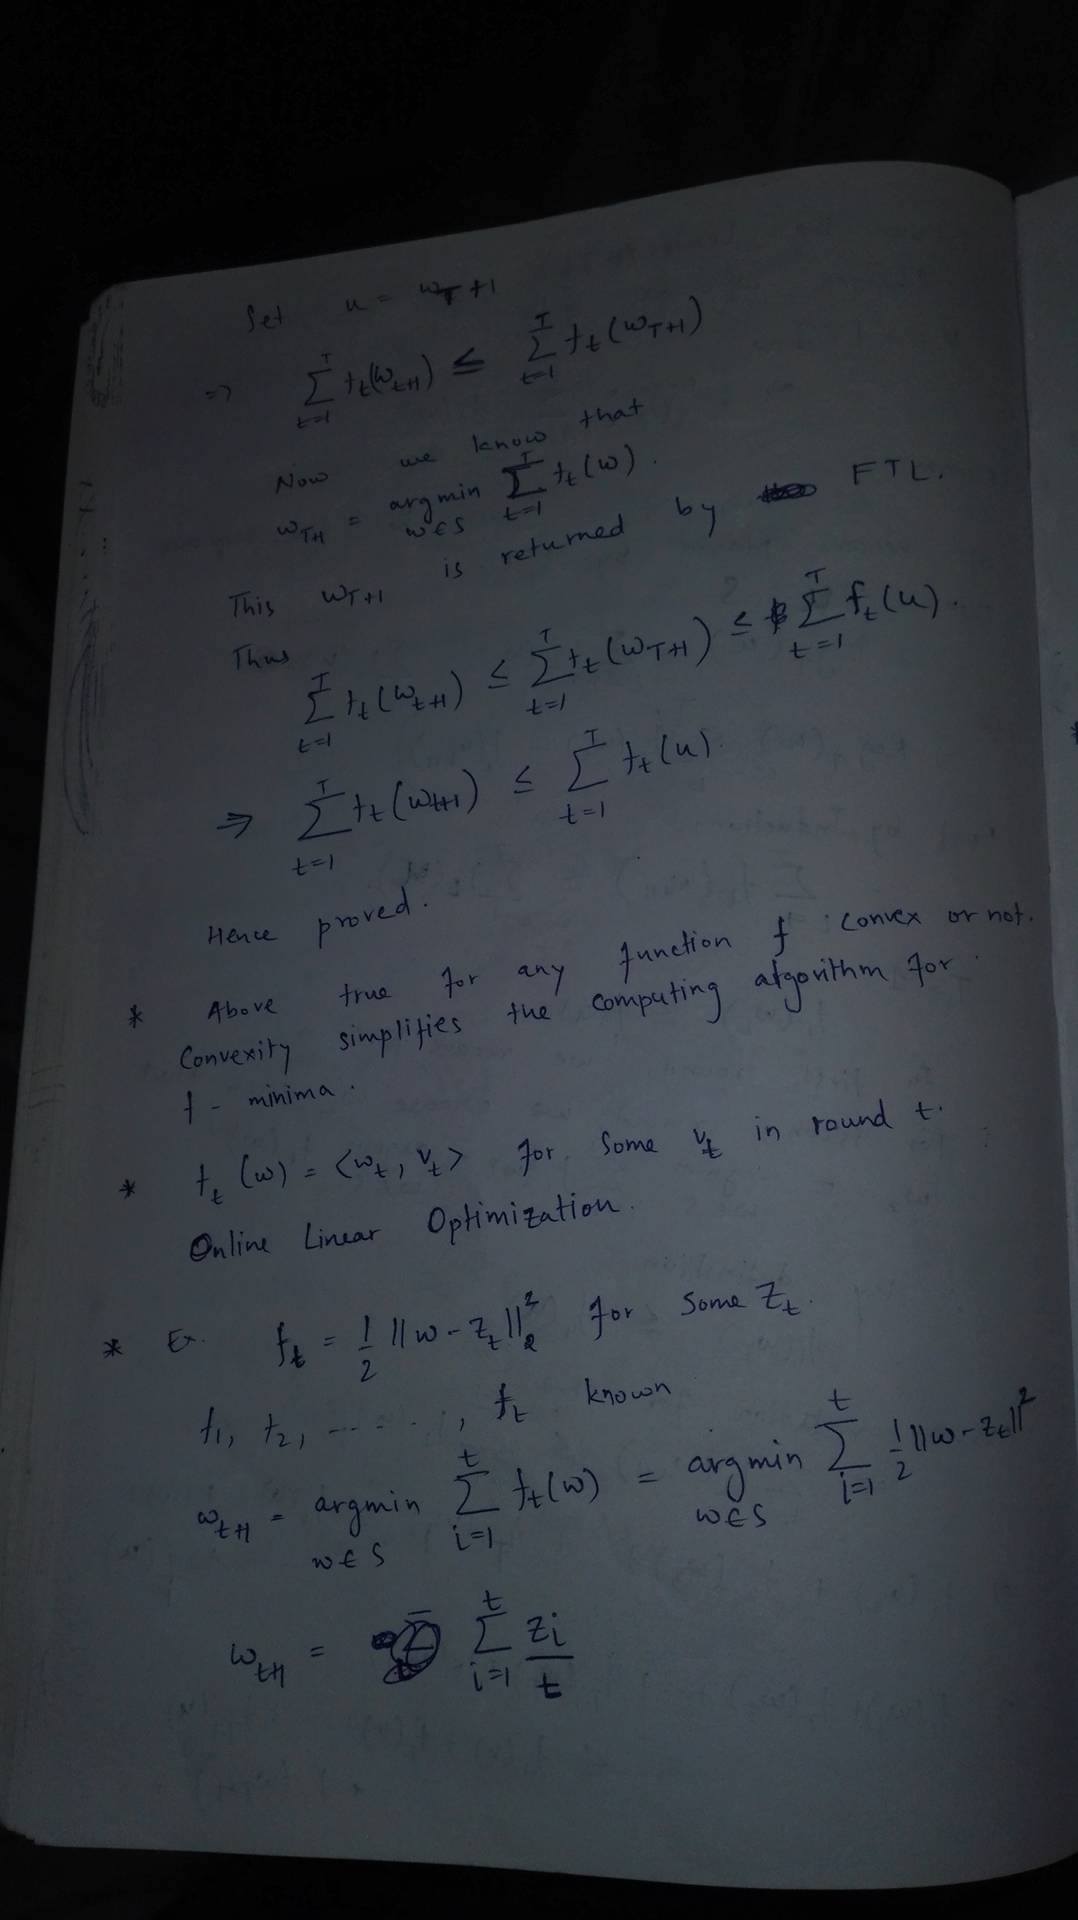 Set u = w_T+1
⇒ \sum_{t=1}^{T} f_t(w_{t+1}) ≤ \sum_{t=1}^{T} f_t(w_{T+1})
Now we know that
w_{T+1} = argmin_{w∈S} \sum_{t=1}^{T} f_t(w).
This w_{T+1} is returned by FTL.
Thus
\sum_{t=1}^{T} f_t(w_{t+1}) ≤ \sum_{t=1}^{T} f_t(w_{T+1}) ≤ \sum_{t=1}^{T} f_t(u).
⇒ \sum_{t=1}^{T} f_t(w_{t+1}) ≤ \sum_{t=1}^{T} f_t(u).
Hence proved.
* Above true for any function f convex or not.
Convexity simplifies the computing algorithm for
f - minima.
* f_t(w) = <w_t, v_t> for some v_t in round t.
Online Linear Optimization.
* Ex. f_t = \frac{1}{2} ||w - z_t||_2^2 for some z_t.
f_1, f_2, ......, f_t known
w_{t+1} = argmin_{w∈S} \sum_{i=1}^{t} f_t(w) = argmin_{w∈S} \sum_{i=1}^{t} \frac{1}{2} ||w - z_t||^2
w_{t+1} = \sum_{i=1}^{t} \frac{z_i}{t}